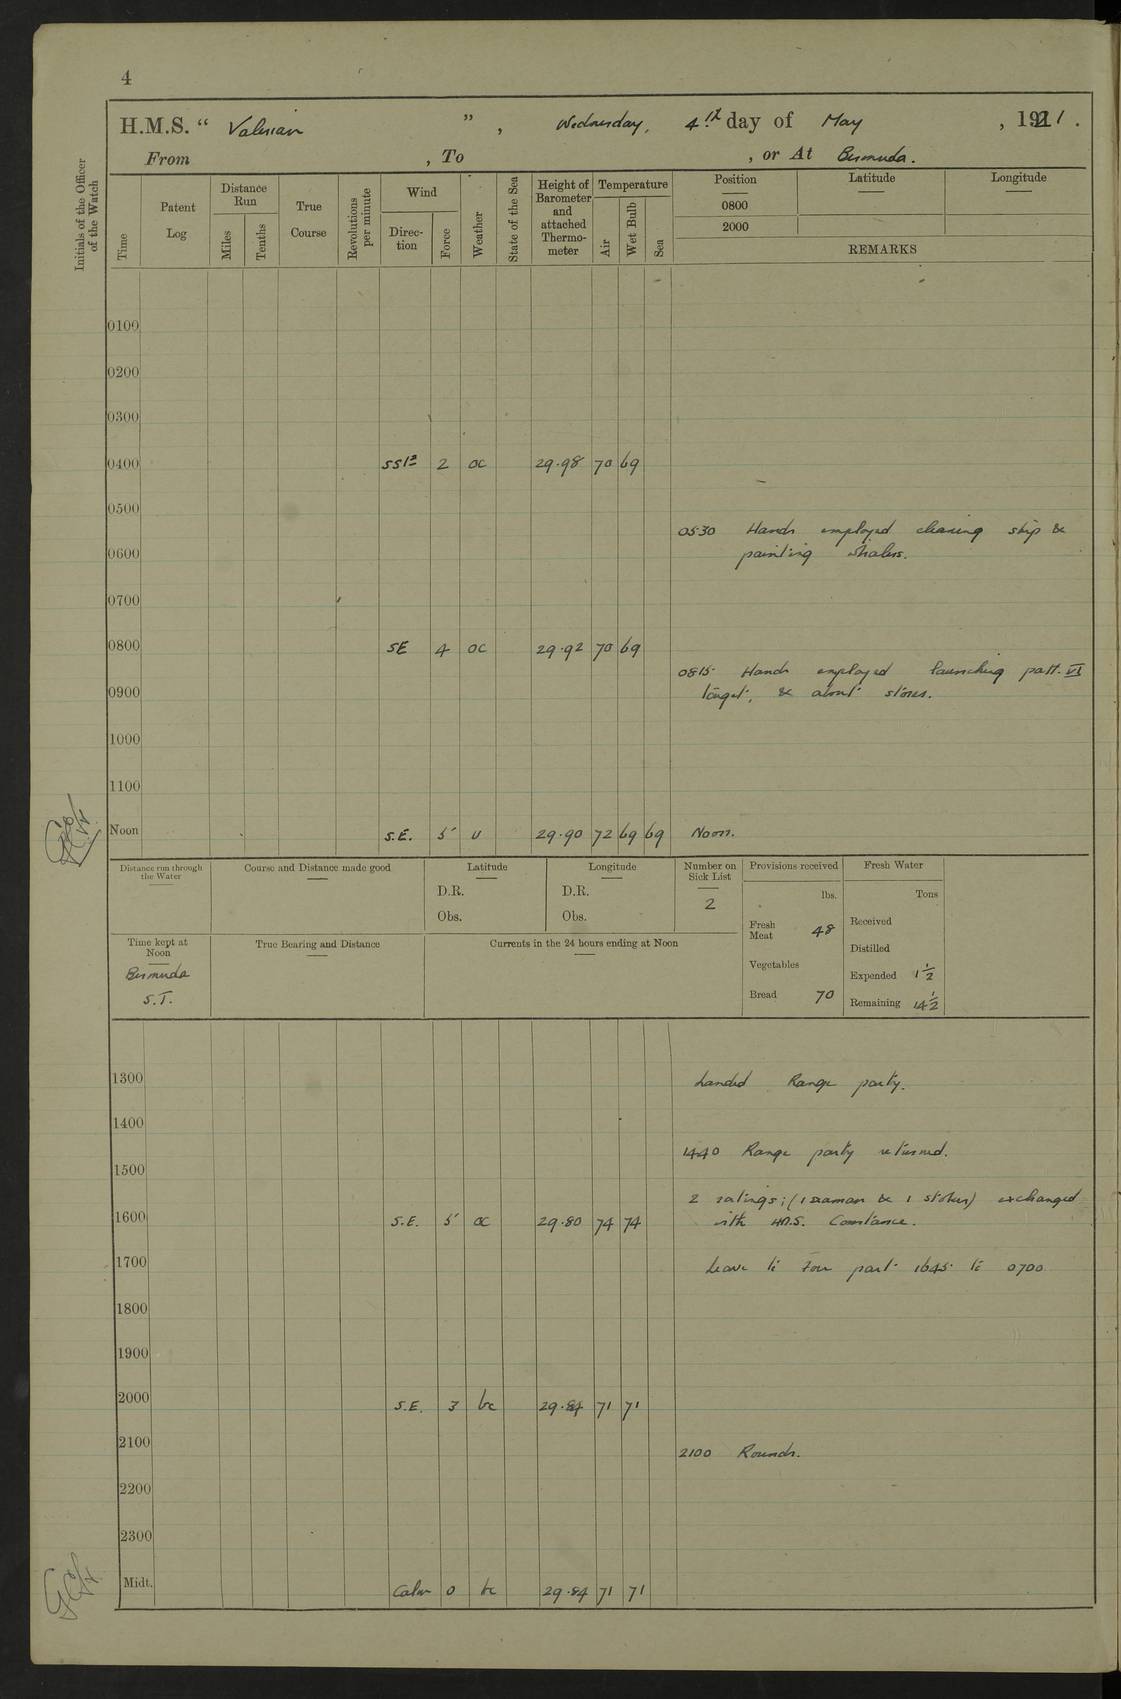 4
H.M.S. “ Valerian ” , Wednesday, 4th day of May , 1921 .
From , To , or At Bermuda.
Initials of the Officer of the Watch
Time
Patent Log
Distance Run
Miles
Tenths
True Course
Revolutions per minute
Wind
Direction
Force
Weather
State of the Sea
Height of Barometer and attached Thermometer
Temperature
Air
Wet Bulb
Sea
Position
Latitude
Longitude
0800
2000
REMARKS
0100
0200
0300
0400 SSE 2 oc 29.98 70 69
0500
0530 Hands employed cleaning ship &
0600 painting whalers.
0700
0800 SE 4 oc 29.92 70 69
0815 Hands employed launching patt. VI
0900 target, & about stores.
1000
1100
Noon S.E. 5 u 29.90 72 69 69 Noon.
Distance run through the Water
Course and Distance made good
Latitude
D.R.
Obs.
Longitude
D.R.
Obs.
Number on Sick List
2
Provisions received
lbs.
Fresh Meat 48
Vegetables
Bread 70
Fresh Water
Tons
Received
Distilled
Expended 1 1/2
Remaining 14 1/2
Time kept at Noon
Bermuda
S.T.
True Bearing and Distance
Currents in the 24 hours ending at Noon
1300 Landed Range party.
1400
1440 Range party returned.
1500
2 ratings; (1 seaman & 1 stoker) exchanged
1600 S.E. 5 oc 29.80 74 74 with H.M.S. Constance.
1700 Leave to Four part 1645 to 0700
1800
1900
2000 S.E. 3 bc 29.84 71 71
2100 2100 Rounds.
2200
2300
Midt. Calm 0 bc 29.84 71 71